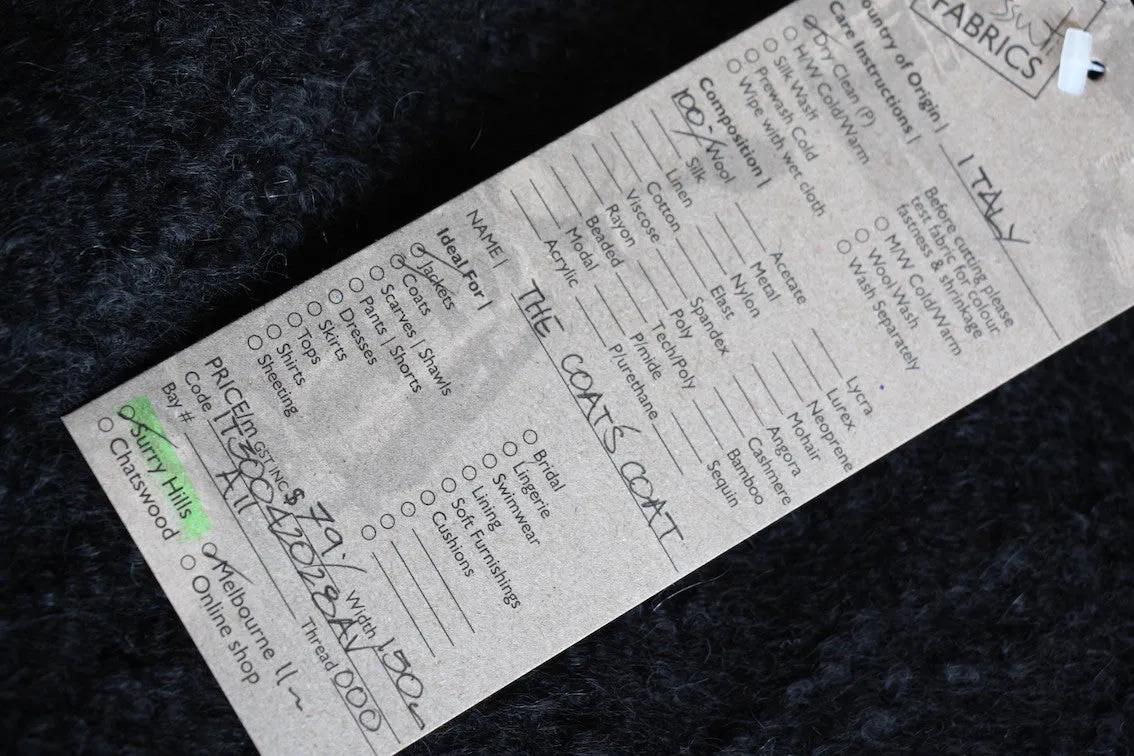 FABRICS
Country of Origin | ITALY
Care Instructions |
Dry Clean (P)
H/W Cold/Warm
Silk Wash
Prewash Cold
Wipe with wet cloth
Before cutting please
test fabric for colour
fastness & shrinkage
M/W Cold/Warm
Wool Wash
Wash Separately
Composition |
100% Wool
Silk
Linen
Cotton
Viscose
Rayon
Beaded
Modal
Acrylic
Acetate
Metal
Nylon
Elast
Spandex
Poly
Tech/Poly
P/mide
P/urethane
Lycra
Lurex
Neoprene
Mohair
Angora
Cashmere
Bamboo
Sequin
NAME | THE COATS COAT
Ideal For |
Jackets
Coats
Scarves | Shawls
Pants | Shorts
Dresses
Skirts
Tops
Shirts
Sheeting
Bridal
Lingerie
Swimwear
Lining
Soft Furnishings
Cushions
PRICE/m GST INC $ 79.- Width 150c
Code 1730042028AV Thread 000
Bay # A11
Surry Hills Melbourne 11~
Chatswood Online shop